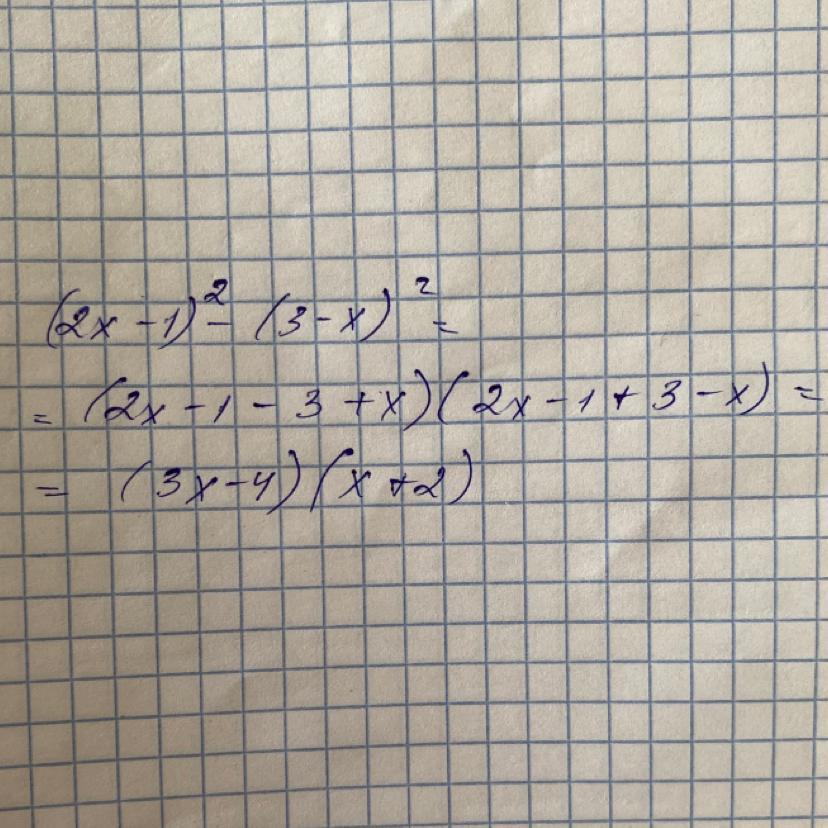 (2x - 1)² - (3 - x)² =
= (2x - 1 - 3 + x)(2x - 1 + 3 - x) =
= (3x - 4)(x + 2)